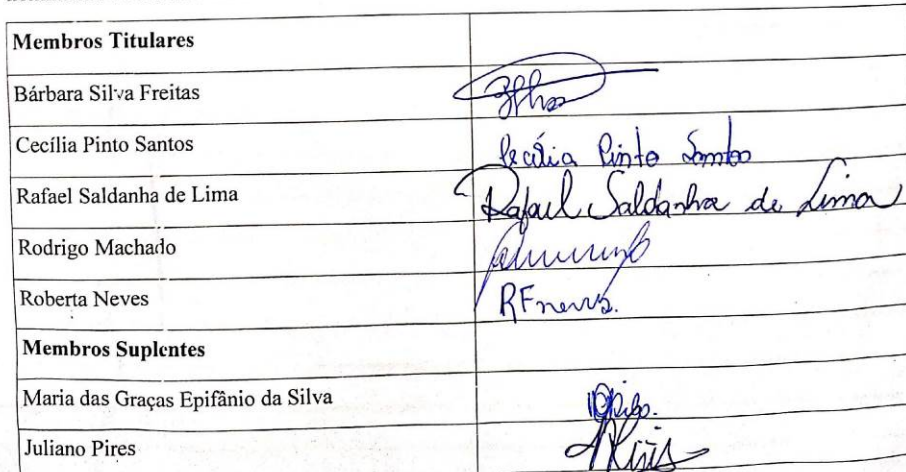 Membros Titulares
Bárbara Silva Freitas
Cecília Pinto Santos Cecília Pinto Santos
Rafael Saldanha de Lima Rafael Saldanha de Lima
Rodrigo Machado
Roberta Neves RFneves.
Membros Suplentes
Maria das Graças Epifânio da Silva
Juliano Pires